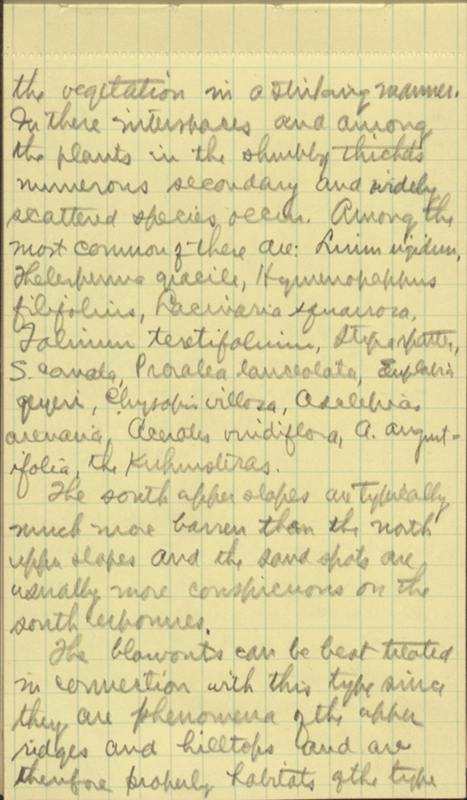 the vegetation in a striking manner.
In these interspaces and among
the plants in the shrubby thickets
numerous secondary and widely
scattered species occur. Among the
most common of these are: Linum rigidum,
Thelesperma gracile, Hymenopappus
filifolius, Lacinaria squarrosa,
Talinum teretifolium, Stipa spartea,
S. comata, Psoralea lanceolata, Euphorbia
geyeri, Chrysopsis villosa, Asclepias
arenaria, Acerates viridiflora, A. angust-
ifolia, the Kuhnisteras.
The south upper slopes are typically
much more barren than the north
upper slopes and the sand spots are
usually more conspicuous on the
south exposures.
The blowouts can be best treated
in connection with this type since
they are phenomena of the upper
ridges and hilltops and are
therefore properly habitats of the type